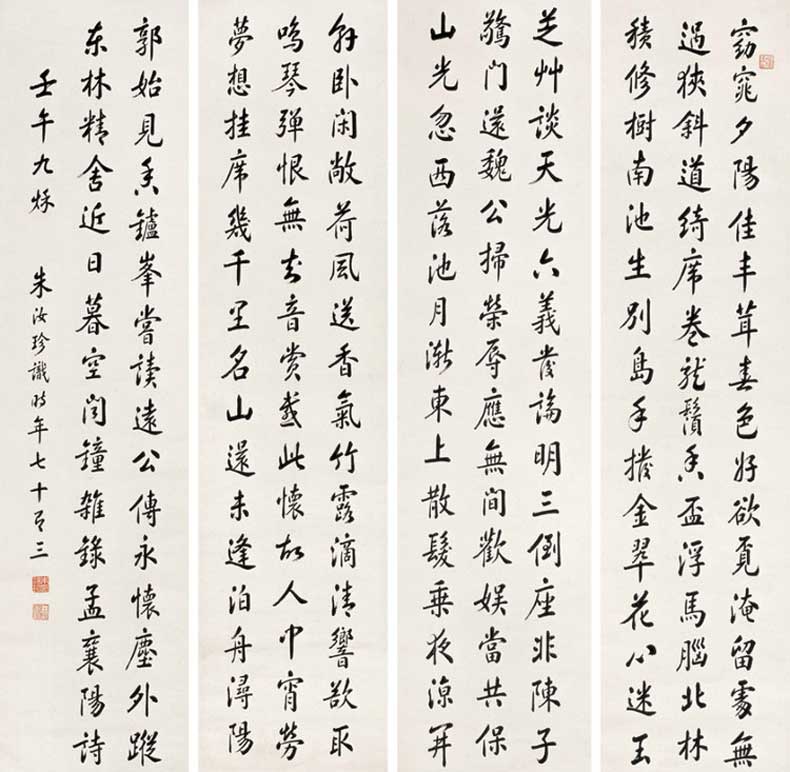 窈窕夕陽佳丰茸春色好欲覓淹留處無
過狹斜道綺席卷龍鬚香盃浮馬腦北林
積修樹南池生別島手撥金翠花心迷玉
芝艸談天光六義發論明三倒座非陳子
驚門還魏公掃榮辱應無間歡娛當共保
山光忽西落池月漸東上散髮乘夜涼开
軒臥閑敞荷風送香氣竹露滴清響欲取
鳴琴彈恨無知音賞感此懷故人中宵勞
夢想挂席幾千里名山還未逢泊舟潯陽
郭始見香鑪峯嘗讀遠公傳永懷塵外蹤
東林精舍近日暮空聞鐘雜錄孟襄陽詩
壬午九秌
朱汝珍識時年七十有三